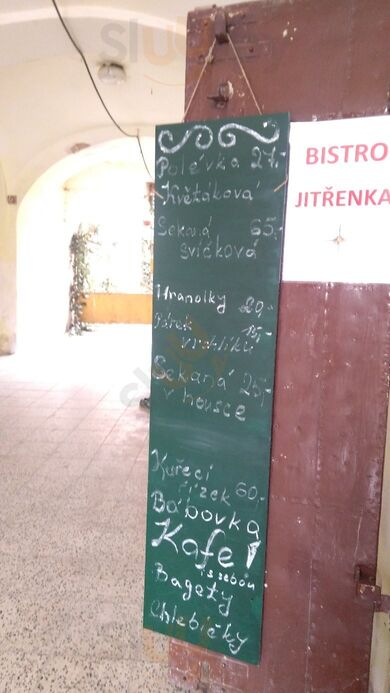 Polévka 27,-
Květáková
Sekaná 65,-
svíčková
Hranolky 20,-
Párek 15,-
v rohlíku
Sekaná 25,-
v housce
Kuřecí
řízek 60,-
Bábovka
Kafe
s sebou
Bagety
Chlebíčky
BISTRO
JITŘENKA